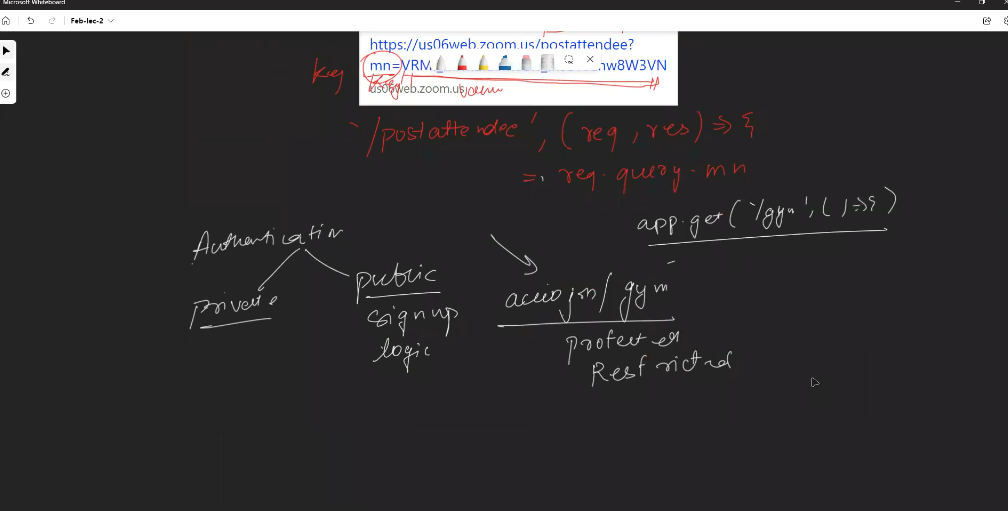 Microsoft Whiteboard
Feb-lec-2
https://us06web.zoom.us/postattendee?
mn=VRM nw8W3VN
us06web.zoom.us
key
key
'/postattendee', (req, res) => {
= req.query.mn
app.get('/gym', () => {)
Authentication
private
public
signup
logic
/ gym
protected
Restricted